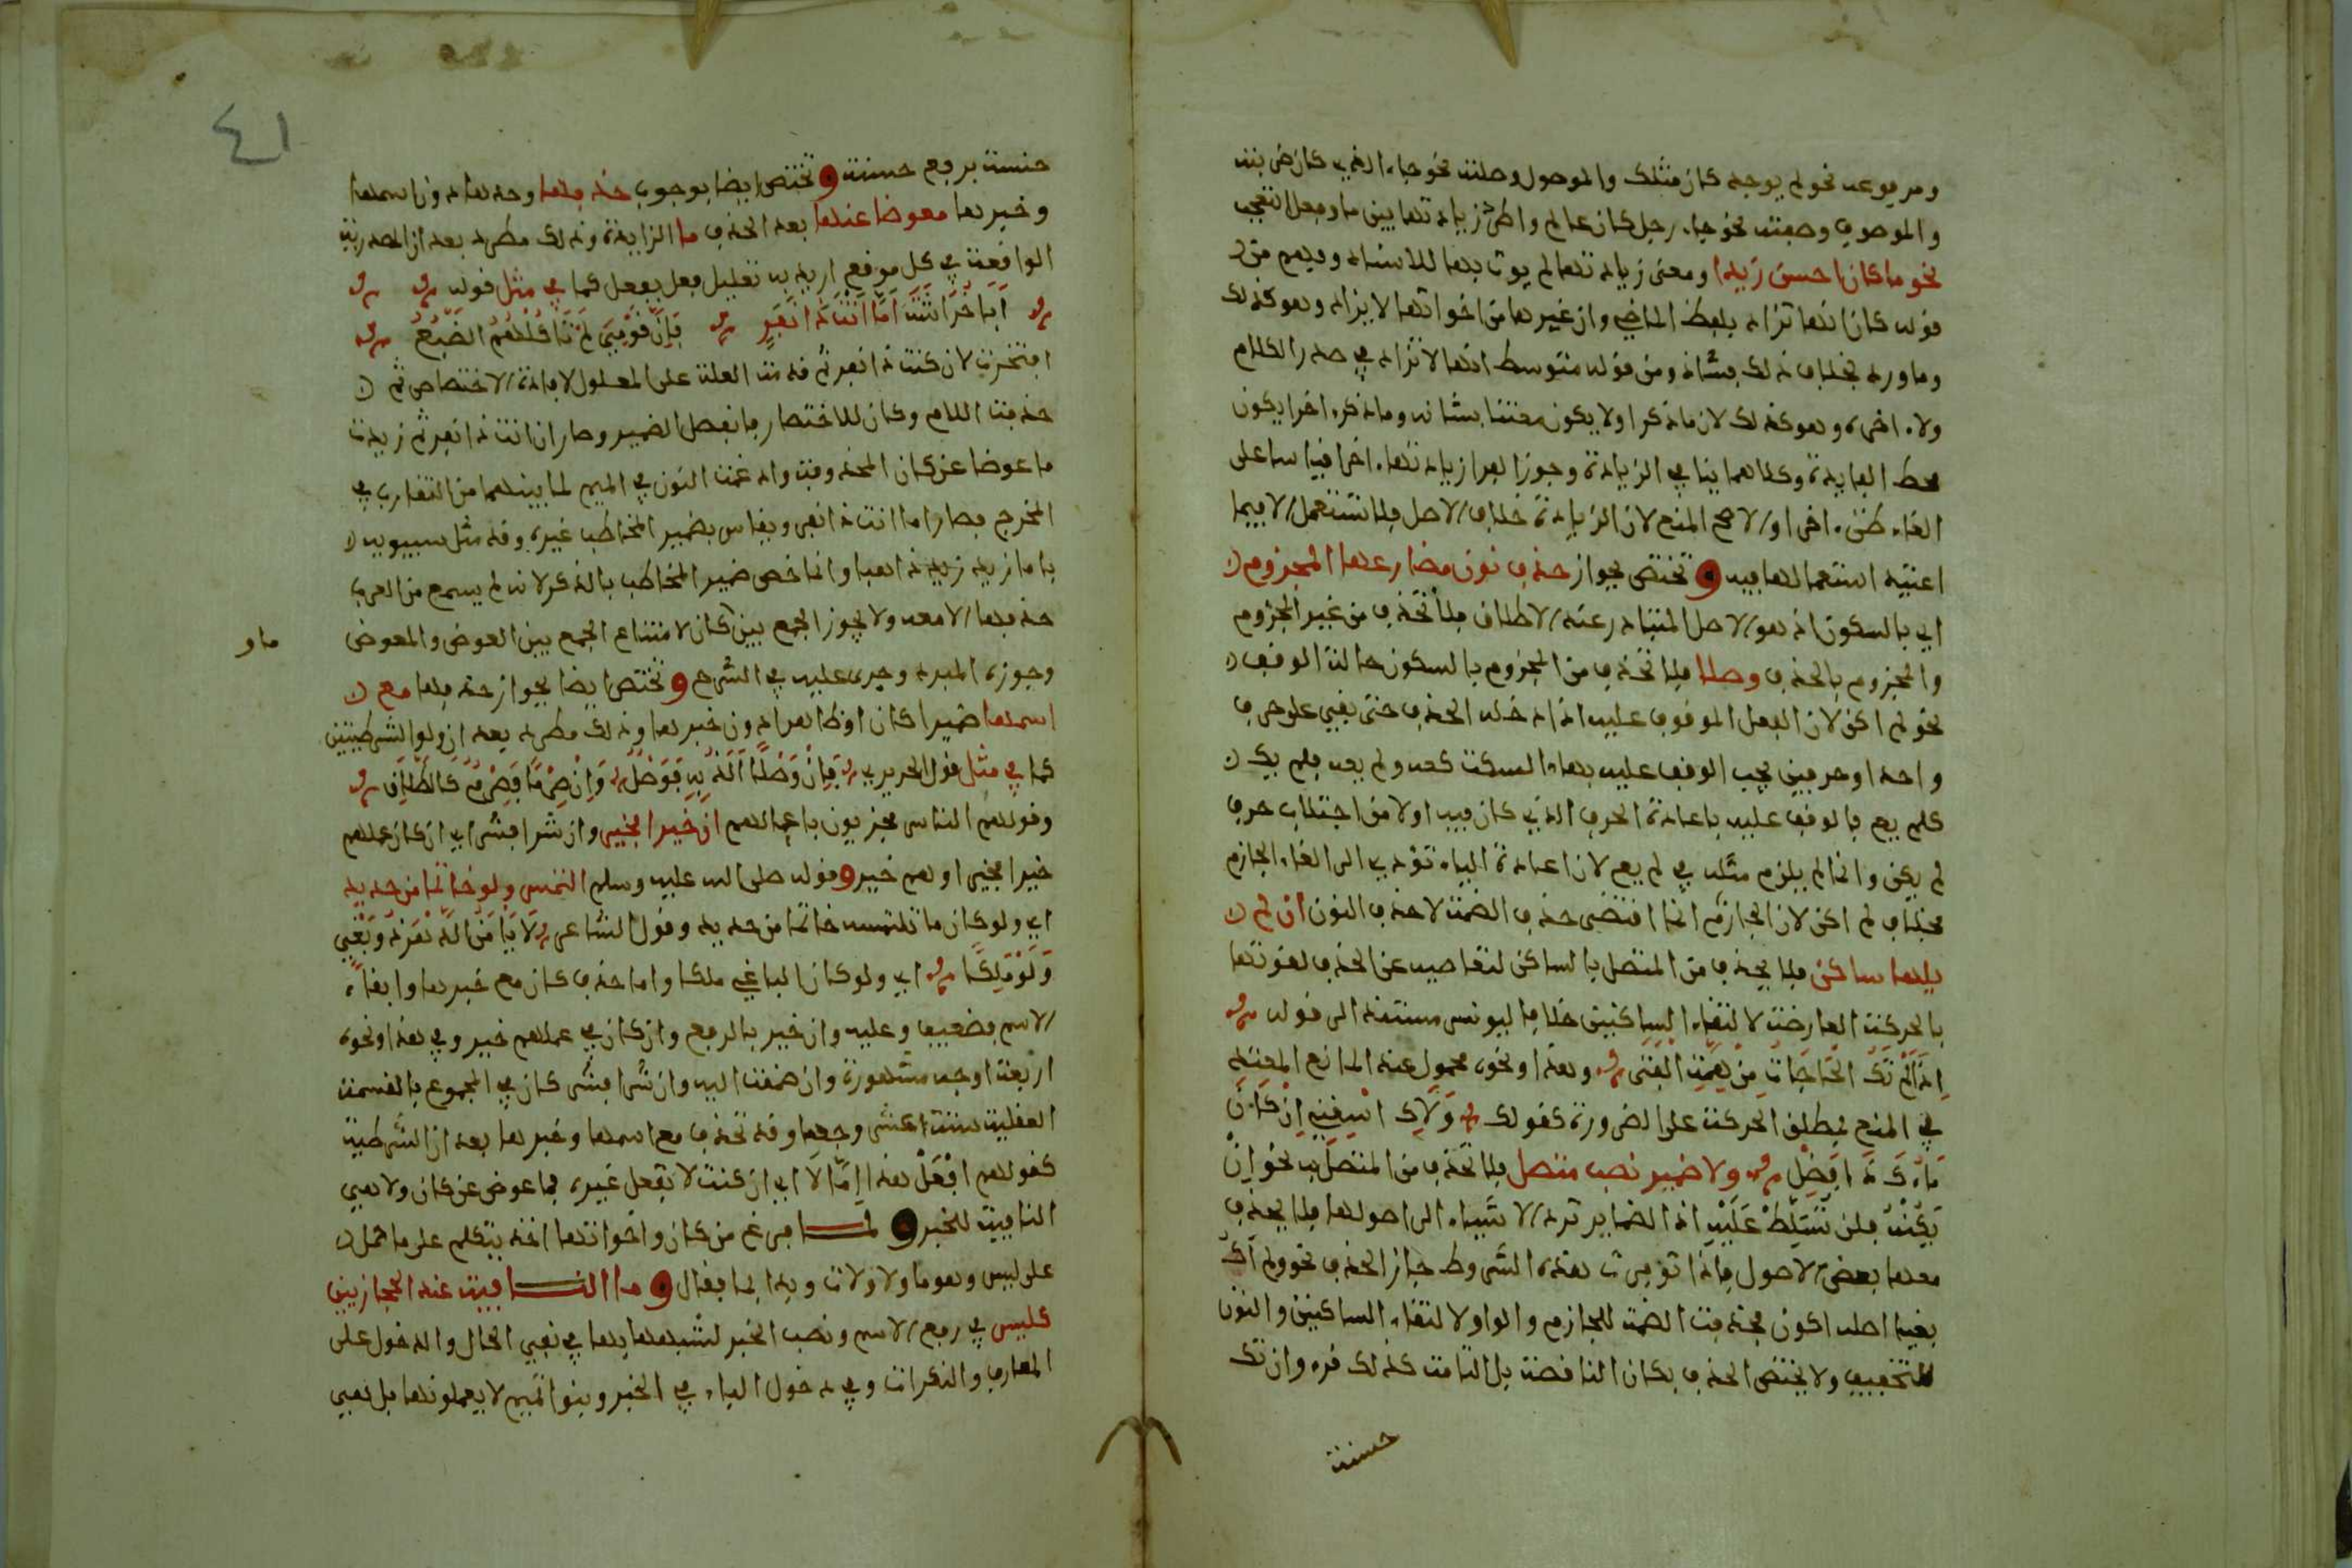 ومرفوعه نحو لم يوجد كان مثلك والموصول وصلته نحو جاء الذي كان ضربته
والموصوف وصفته نحو جاء رجل كان عالم واطرد زيادتها بين ما وفعل التعجب
نحو ما كان احسن زيدا ومعنى زيادتها لم يوت بها للاسناد وفهم من
قوله كان انها تزاد بلفظ الماضي وان غيرها من اخواتها لا يزاد وهو كذلك
وما ورد بخلاف ذلك فشاذ ومن قوله متوسط انها لا تزاد في صدر الكلام
ولا اخره وهو كذلك لان ما ذكر اولا يكون معتنا بشانه وما ذكر اخرا يكون
محط الفايدة وكلاهما ينافي الزيادة وجوز الفرا زيادتها اخرا قياسا على
الغاء ظن اخرا والاصح المنع لان الزيادة خلاف الاصل فلا تستعمل الا فيما
اعتيد استعمالها فيه وتختص بجواز حذف نون مضارعها المجزوم
اي بالسكون اذ هو الاصل المتبادر عند الاطلاق فلا تحذف من غير المجزوم
والمجزوم بالحذف وصلا فلا تحذف من المجزوم بالسكون حالة الوقف
نحو لم اكن لان الفعل الموقوف عليه اذا دخله الحذف حتى بقي على حرف
واحد او حرفين يجب الوقف عليه بهاء السكت كعه ولم يعه فلم يك
كلم يع فالوقف عليه باعادة الحرف الذي كان فيه اولا من اجتلاب حرف
لم يكن وانما لم يلزم مثله في لم يع لان اعادة الياء تؤدي الى الغاء الجازم
بخلاف لم اكن لان الجازم انما اقتضى حذف الضمة لا حذف النون ان لم
يلها ساكن فلا يحذف من المتصل بالساكن لتعاصيه عن الحذف لقوتها
بالحركة العارضة لالتقاء الساكنين خلافا ليونس مستندا الى قوله
اذا لم تك الحاجات من همة الفتى وهذا ونحوه محمول عند المانع المعتد
في المنع بمطلق الحركة على الضرورة كقولك ولاك اسقني ان كان
ماؤك ذا فضل ولا ضمير نصب متصل فلا تحذف من المتصل به نحو ان
يكنه فلن تسلط عليه اذ الضماير ترد الاشياء الى اصولها فلا يحذف
معها بعض الاصول فاذا توفرت هذه الشروط جاز الحذف نحو ولم اك
بغيا اصله اكون فحذفت الضمة للجازم والواو لالتقاء الساكنين والنون
للتخفيف ولا يختص الحذف بكان الناقصة بل التامة كذلك قرء وان تك
حسنة
٤١
حسنة برفع حسنة وتختص ايضا بوجوب حذفها وحدها دون اسمها
وخبرها معوضا عنها بعد الحذف ما الزايدة وذلك مطرد بعد ان المصدرية
الواقعة في كل موضع اريد به تعليل فعل بفعل كما في مثل قوله
ابا خراشة اما انت ذا نفر فان قومي لم تاكلهم الضبع
افتخرت لان كنت ذا نفر ثم قدمت العلة على المعلول لافادة الاختصاص ثم
حذفت اللام وكان للاختصار فانفصل الضمير وصار ان انت ذا نفر ثم زيدت
ما عوضا عن كان المحذوفة وادغمت النون في الميم لما بينهما من التقارب في
المخرج فصار اما انت ذا نفر ويقاس بضمير المخاطب غيره وقد مثل سيبويه
باما زيد ذاهبا وانما خص ضمير المخاطب بالذكر لانه لم يسمع من العرب
حذفها الا معه ولا يجوز الجمع بين كان لامتناع الجمع بين العوض والمعوض
ما و
وجوزه المبرد وجرى عليه في الشرح وتختص ايضا بجواز حذفها مع
اسمها ضميرا كان او ظاهرا دون خبرها وذلك مطرد بعد ان ولو الشرطيتين
كما في مثل قول الحريري فان وصلا الذ به فوصل وان صرما فصرم كالطلاق
وقولهم الناس مجزيون باعمالهم ان خيرا فخير وان شرا فشر اي ان كان عملهم
خيرا فخير او لهم خير وقوله صلى الله عليه وسلم التمس ولو خاتما من حديد
اي ولو كان ما تلتمسه خاتما من حديد وقول الشاعر لا يامن الدهر ذو بغي
ولو ملكا اي ولو كان الباغي ملكا واما حذف كان مع خبرها وابقاء
الاسم فضعيف وعليه وان خير بالرفع وان كان في عملهم خير وفي هذا ونحوه
اربعة اوجه مشهورة وان ضممت اليه وان شرا فشر كان في المجموع بالقسمة
العقلية ستة عشر وجها وقد تحذف مع اسمها وخبرها بعد ان الشرطية
كقولهم افعل هذا اما لا اي ان كنت لا تفعل غيره فما عوض عن كان ولا هي
النافية للخبر ولما فرغ من كان واخواتها اخذ يتكلم على ما حمل
على ليس وهو ما ولا ولات وبدا بما فقال وما النافية عند الحجازيين
كليس في رفع الاسم ونصب الخبر لشبهها بها في نفي الحال والدخول على
المعارف والنكرات وفي دخول الباء في الخبر وبنوا تميم لا يعملونها بل هي